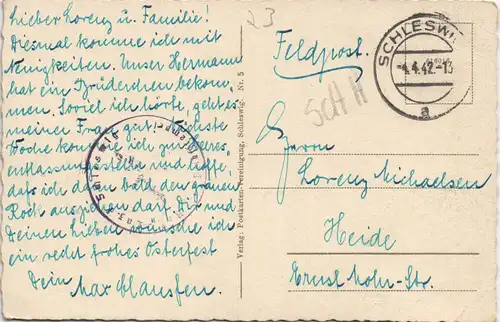 Lieber Lorenz u. Familie!
Diesmal komme ich mit
Neuigkeiten. Unser Hermann
hat ein Brüderchen bekom-
men. Soviel ich hörte, geht es
meiner Frau gut. Nächste
Woche komme ich zur
entlassungsstelle und hoffe,
daß ich dann bald den grauen
Rock ausziehen darf. Dir und
Deinen Lieben wünsche ich
ein recht frohes Osterfest
Dein
Max Clausen.
Verlag: Postkarten-Vereinigung, Schleswig Nr. 5
23
Feldpost.
Sch H
SCHLESWIG
-4.4.42.-18
a
Herrn
Lorenz Michaelsen
Heide
Ernst Mohr-Str.